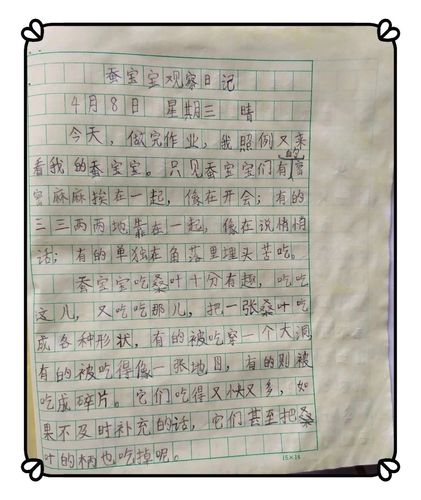 蚕宝宝观察日记
4月8日 星期三 晴
今天，做完作业，我照例又来
看我的蚕宝宝。只见蚕宝宝们有的密
密麻麻挨在一起，像在开会；有的
三三两两地靠在一起，像在说悄悄
话；有的单独在角落里埋头苦吃。
蚕宝宝吃桑叶十分有趣，吃吃
这儿，又吃吃那儿，把一张桑叶吃
成各种形状，有的被吃穿一个大洞
有的被吃得像一张地图，有的则被
吃成碎片。它们吃得又快又多，如
果不及时补充的话，它们甚至把桑
叶的柄也吃掉呢。
15×18